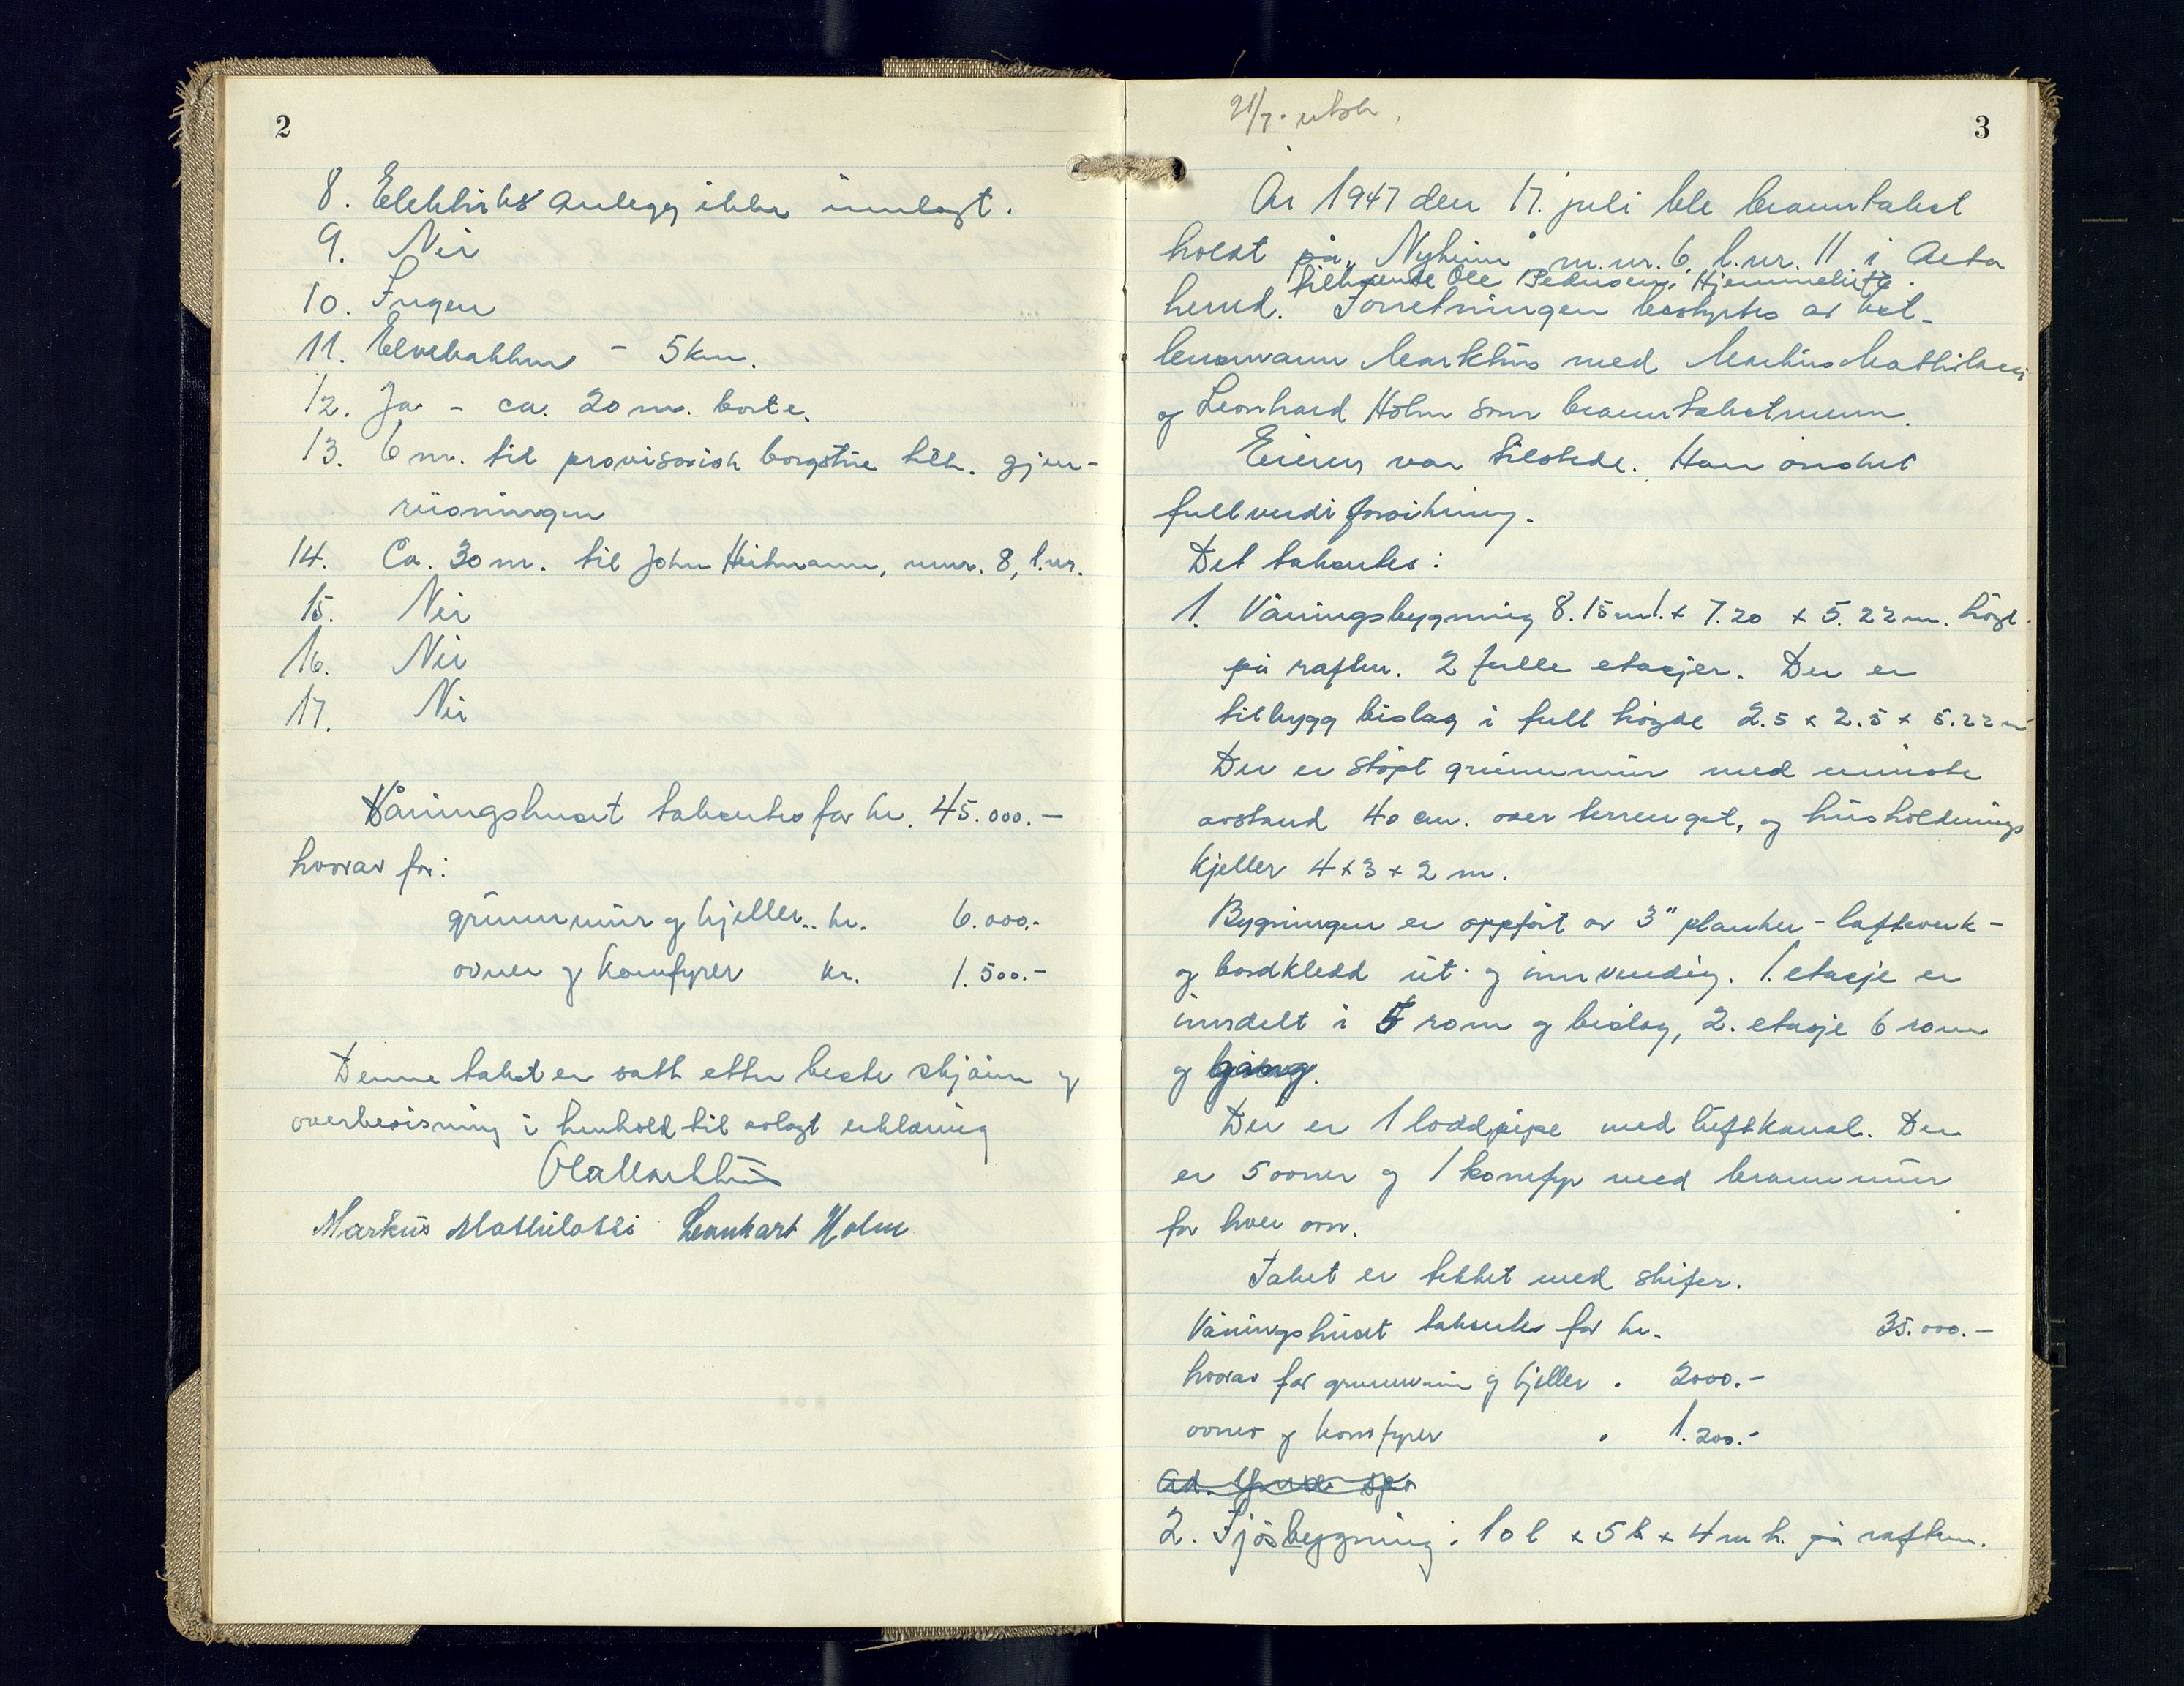 2
8. Elektrisk anlegg ikke innlagt.
9. Nei
10. Ingen
11. Elvebakken - 5 km.
12. Ja - ca. 20 m. borte.
13. 6 m. til provisorisk borgstue tilh. gjen-
reisningen
14. Ca. 30 m. til John Heitmann, mnr. 8, l.nr.
15. Nei
16. Nei
17. Nei
Våningshuset takseres for kr. 45.000.-
hvorav for:
grunnmur og kjeller.. kr. 6.000.-
ovner og komfyrer kr. 1.500.-
Denne takst er satt etter beste skjønn og
overbevisning i henhold til avlagt erklæring
Markus Mathilassi Leonhart Holm
3
21/7. utsk.
År 1947 den 17. juli ble branntakst
holdt på "Nyheim" m.nr. 6, l.nr. 11 i Alta
tilhørende Ole Pedersen, Hjemmeluft.
herred. Forretningen bestyrtes av
lensmann Markhus med Markus Mathilassi
og Leonhard Holm som branntakstmenn.
Eieren var tilstede. Han ønsket
fullverdiforsikring.
Det takseres:
1. Våningsbygning 8.15 m l. x 7.20 x 5.22 m. høgt
på raften. 2 fulle etasjer. Der er
tilbygg bislag i full høgde 2.5 x 2.5 x 5.22 m
Der er støpt grunnmur med minste
avstand 40 cm. over terrenget, og husholdnings
kjeller 4 x 3 x 2 m.
Bygningen er oppført av 3" planker - lafteverk -
og bordkledd ut- og innvendig. 1. etasje er
inndelt i 5 rom og bislag, 2. etasje 6 rom
og gang.
Der er 1 loddpipe med luftkanal. Der
er 5 ovner og 1 komfyr med brannmur
for hver ovn.
Taket er tekket med skifer.
Våningshuset takseres for kr. 35.000.-
hvorav for grunnmur og kjeller " 2000.-
ovner og komfyrer " 1.200.-
2. Fjøsbygning: 10 l x 5 b x 4 m h. på raften.